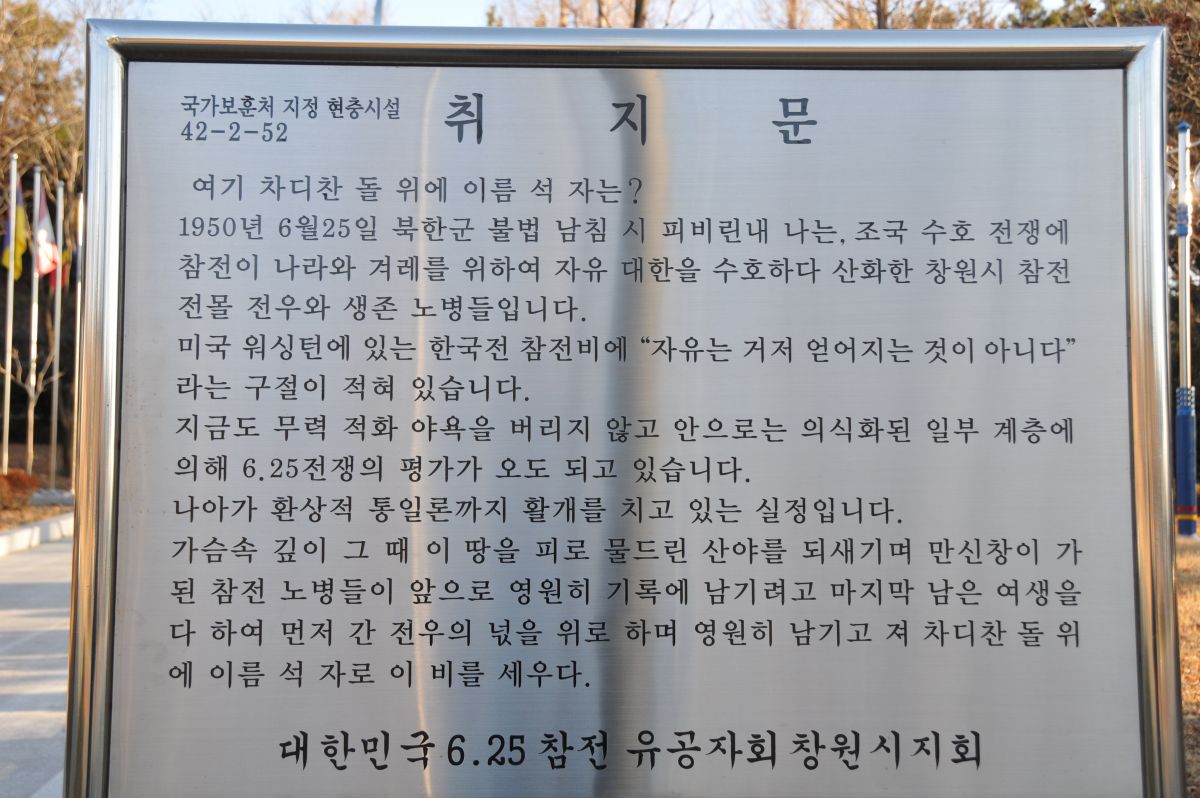 국가보훈처 지정 현충시설
42-2-52
취 지 문
여기 차디찬 돌 위에 이름 석 자는?
1950년 6월25일 북한군 불법 남침 시 피비린내 나는, 조국 수호 전쟁에
참전이 나라와 겨레를 위하여 자유 대한을 수호하다 산화한 창원시 참전
전몰 전우와 생존 노병들입니다.
미국 워싱턴에 있는 한국전 참전비에 “자유는 거저 얻어지는 것이 아니다”
라는 구절이 적혀 있습니다.
지금도 무력 적화 야욕을 버리지 않고 안으로는 의식화된 일부 계층에
의해 6.25전쟁의 평가가 오도 되고 있습니다.
나아가 환상적 통일론까지 활개를 치고 있는 실정입니다.
가슴속 깊이 그 때 이 땅을 피로 물드린 산야를 되새기며 만신창이 가
된 참전 노병들이 앞으로 영원히 기록에 남기려고 마지막 남은 여생을
다 하여 먼저 간 전우의 넋을 위로 하며 영원히 남기고 져 차디찬 돌 위
에 이름 석 자로 이 비를 세우다.
대한민국 6.25 참전 유공자회 창원시지회